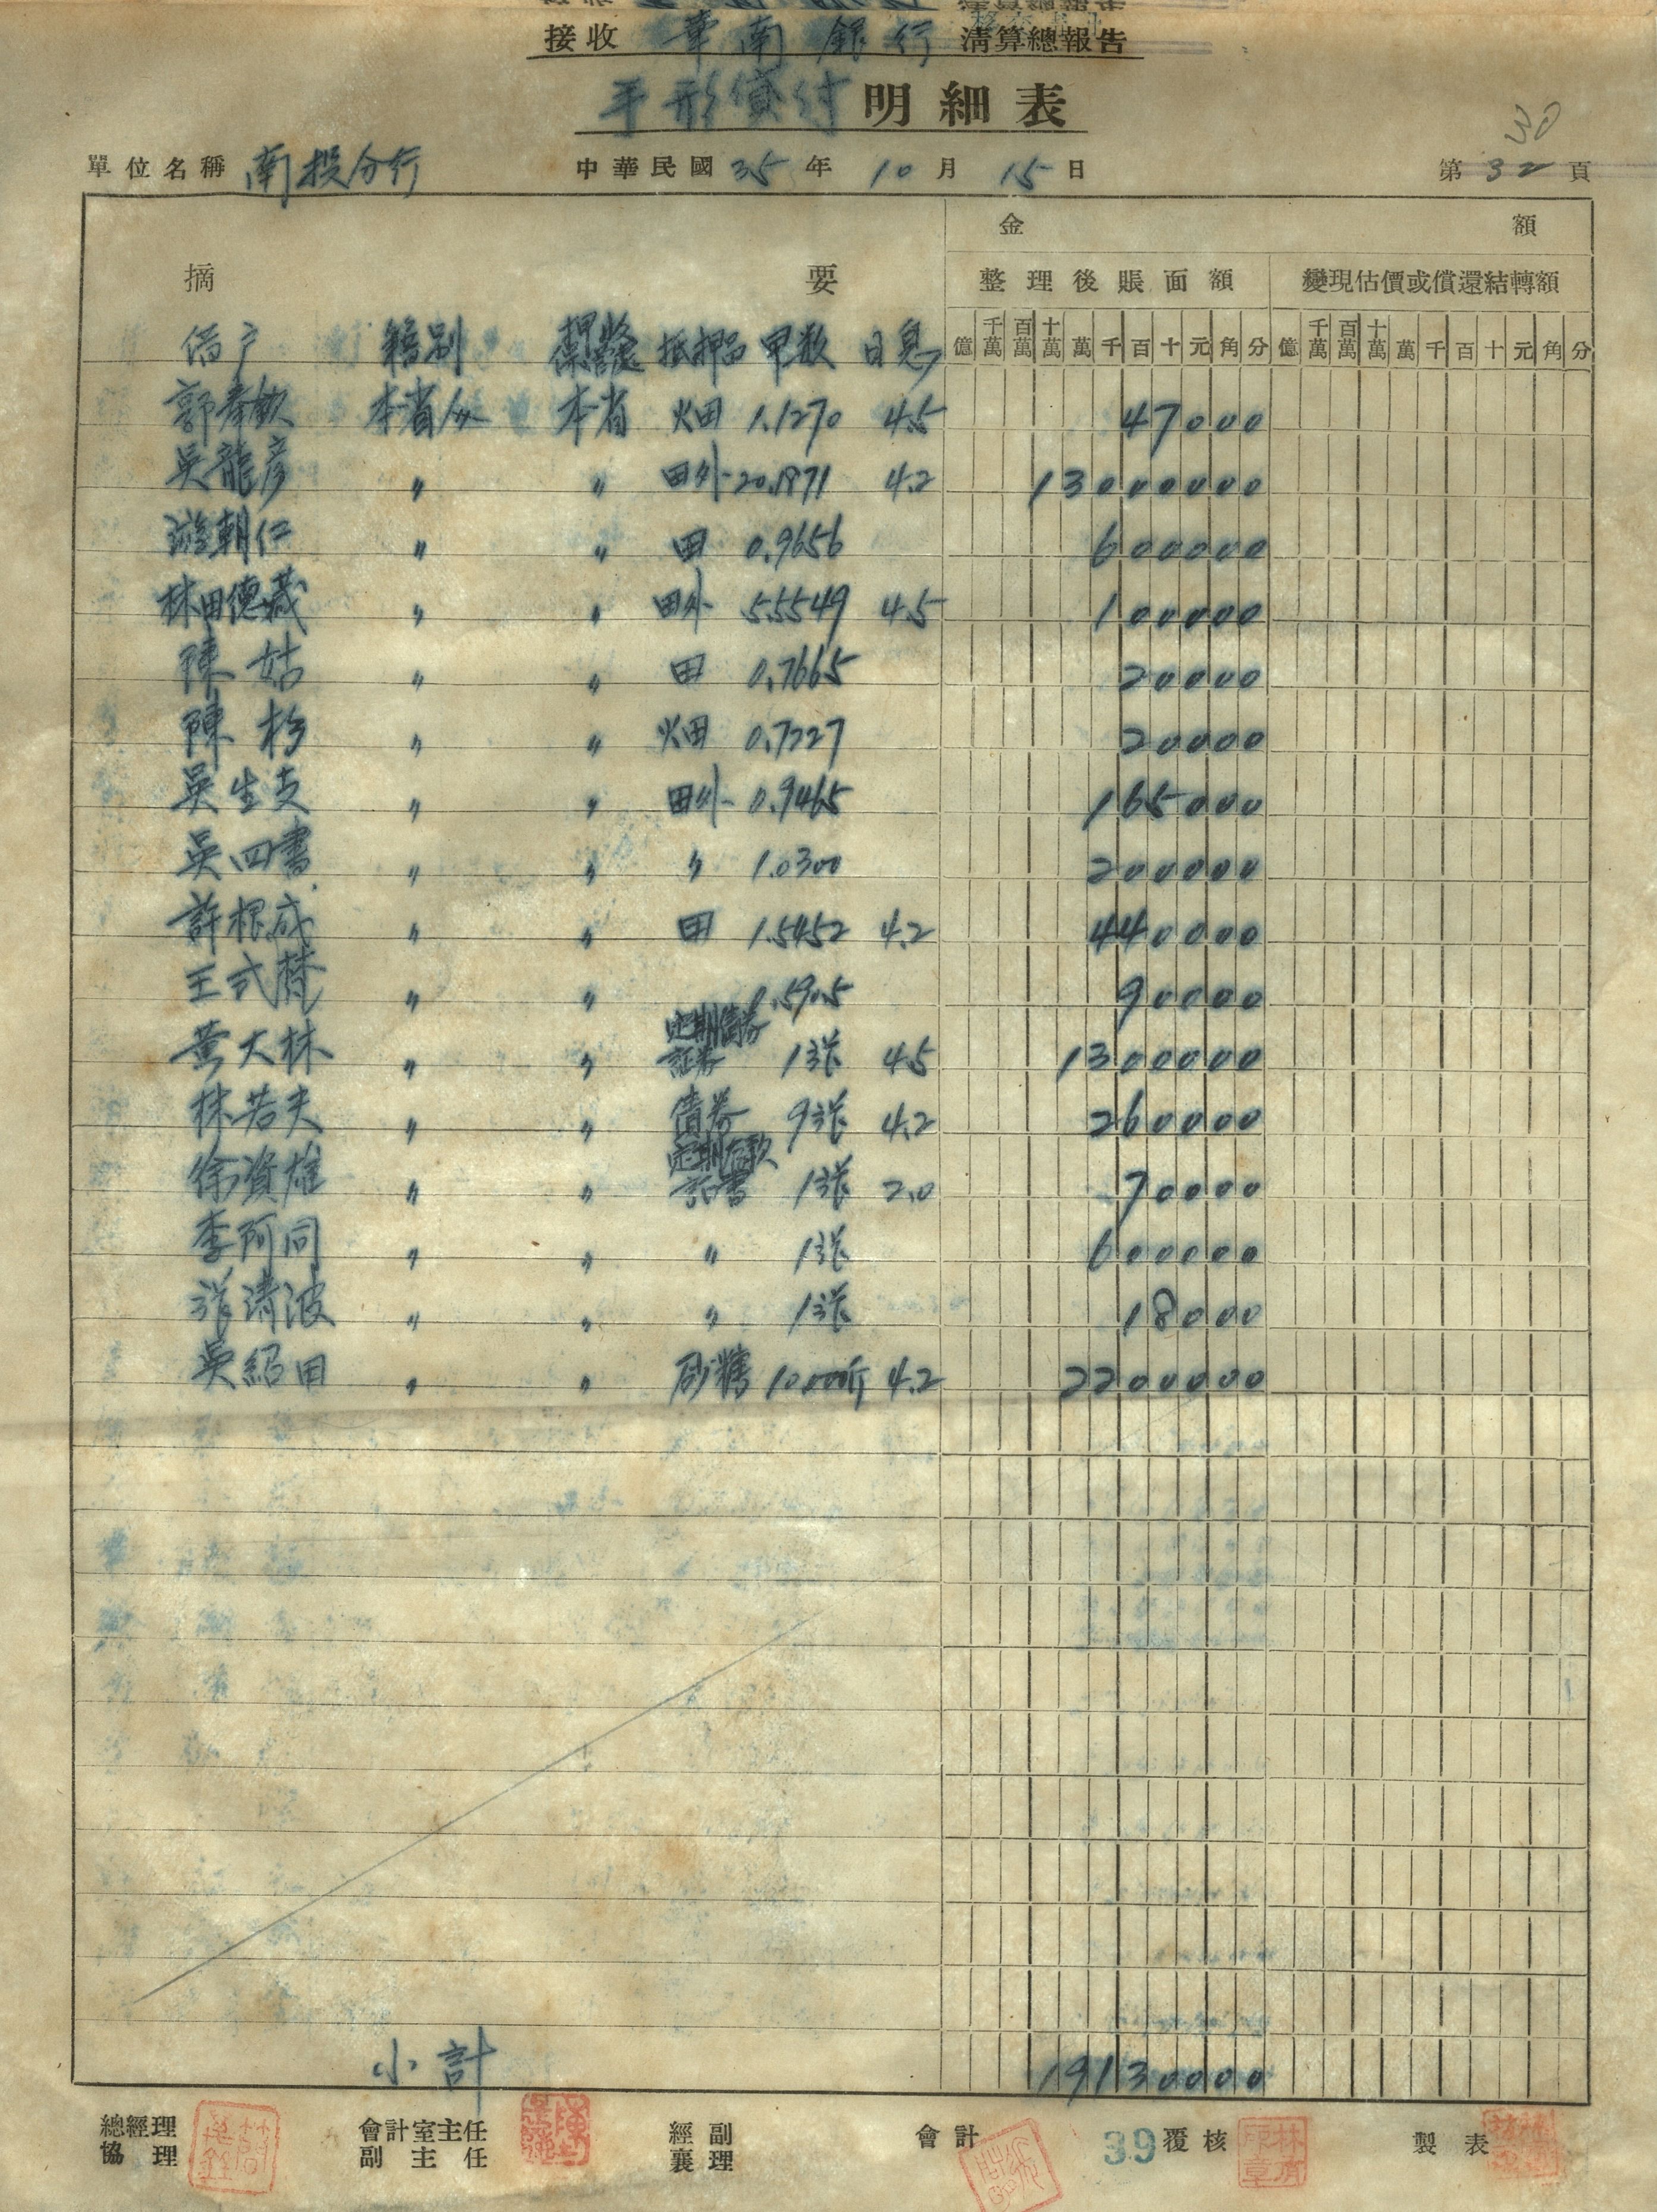 接收 華南銀行 清算總報告
平形貸付 明細表
30
單位名稱 南投分行 中華民國 35 年 10 月 15 日 第 32 頁
金 額
摘 要 整理後賬面額 變現估價或償還結轉額
億 千萬 百萬 十萬 萬 千 百 十 元 角 分 億 千萬 百萬 十萬 萬 千 百 十 元 角 分
借户 籍別 抵押品 甲數 日息
郭春欽 本省人 本省 畑 1.1270 4.5 47000
吳龍彦 〃 〃 田外 20.1871 4.2 13000000
游朝仁 〃 〃 田 0.9656 600000
林田德藏 〃 〃 田外 5.5549 4.5 100000
陳姑 〃 〃 田 0.7665 20000
陳杉 〃 〃 畑 0.7227 20000
吳生支 〃 〃 田外 0.9465 165000
吳四書 〃 〃 〃 1.0300 200000
許根成 〃 〃 田 1.5452 4.2 440000
王式 〃 〃 .5905 90000
黃大林 〃 〃 定期債券証券 1張 4.5 1300000
林若夫 〃 〃 債券 9張 4.2 260000
徐資雄 〃 〃 定期存款証書 1張 2.0 70000
李阿同 〃 〃 〃 1張 600000
張清波 〃 〃 〃 1張 18000
吳紹田 〃 〃 砂糖 10,000斤 4.2 2200000
小計 19130000
總經理 會計室主任 經副 會計 39 覆核 製表
協理 副主任 襄理